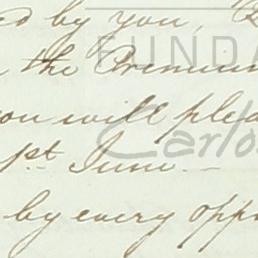 ed by you,
the Premium
you will pleas
1st June —
by every oppo
FUNDA
Carlos